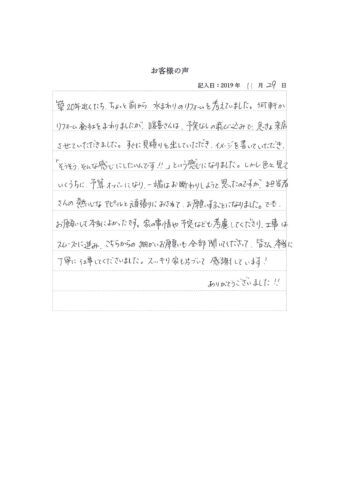 お客様の声
記入日：2019年 11月 29日
築20年出んたち、ちょっと前から 水まわりのリフォームを考えていました。何軒か
リフォーム会社をまわりましたが、さんは、予算なしの飛び込みで、急きょ来店
させていただきました。すぐに見積りを出していただき、イメージを書いていただき、
「そうそう、そんな感じにしたいんです!!」という感じになりました。しかし色々見て
いくうちに、予算オーバーになり、一端はお断わりしようと思ったのですが、担当者
さんの熱いなアピールと頑張りにおされて、お願いすることになりました。でも、
お願いして本当によかったです。家の事情や予算なども考慮してくださり、工事は
スムーズに進み、こちらからの細かいお願いも全部聞いて下さって、皆さん本当に
丁寧に仕事してくださいました。スッキリ家も片づいて 感謝しています!
ありがとうございました!!